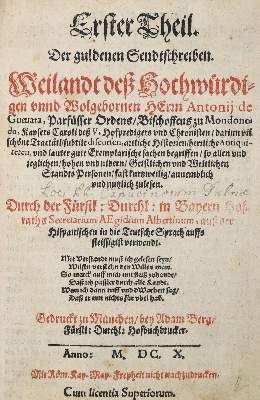 Erster Theil.
Der guldenen Sendtschreiben.
Weilandt deß Hochwürdi-
gen vnnd Wolgebornen HErn Antonij de
Gueuara, Parfüsser Ordens / Bischoffens zu Mondone-
do, Kaysers Caroli deß V. Hofpredigers vnd Chronisten / darinn vil
schöne Tractätl / subtile discursen, artliche Historien / herrliche Antiqui-
teten, vnd lauter gute Exemplarische sachen begriffen / so allen vnd
jeglichen / hohen vnd nidern / Geistlichen vnd Weltlichen
Standts Personen / fast kurtzweilig / annemblich
vnd nutzlich zulesen.
Durch der Fürstl: Durchl: in Bayern Hof-
raths Secretarium AEgidium Albertinum, auß der
Hispanischen in die Teutsche Sprach auffs
fleissigist verwendt.
Mit Verstandt muß ich gelesen seyn /
Wilstu verstehn den Willen mein.
So merck auff mich mit fleiß zuhandt /
Gedruckt zu München / bey Adam Berg /
Fürstl: Durchl: Hofbuchdrucker.
Anno: M, DC, X,
Mit Röm. Kay. May. Freyheit nicht nachzudrucken.
Cum licentia Superiorum.